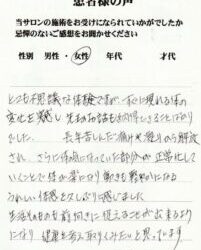 患者様の声
当サロンの施術をお受けになられていかがでしたか
忌憚のないご感想をお聞かせください
性別 男性・女性 年代 才代
とても不思議な体験ですが、すぐに現れる体の
変化を実感し
でした。 長年苦しんだ痛みから解放
され、さらに体感になっていた部分が正常化して
いくことで体が楽になり動きも軽やかになる
うれしい体感と久しぶりに感じました
生活そのものを前向きに捉えることが出来るように
なり 健康を考え取りくみたいと思っています